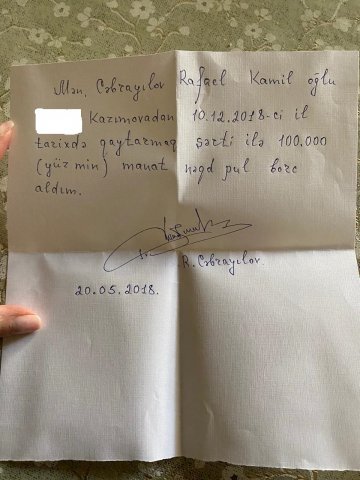 Mən, Cəbrayılov Rafael Kamil oğlu
Kazımovadan 10.12.2018-ci il
tarixdə qaytarmaq şərti ilə 100.000
(yüz min) manat nəqd pul borc
aldım.
R. Cəbrayılov.
20.05.2018.